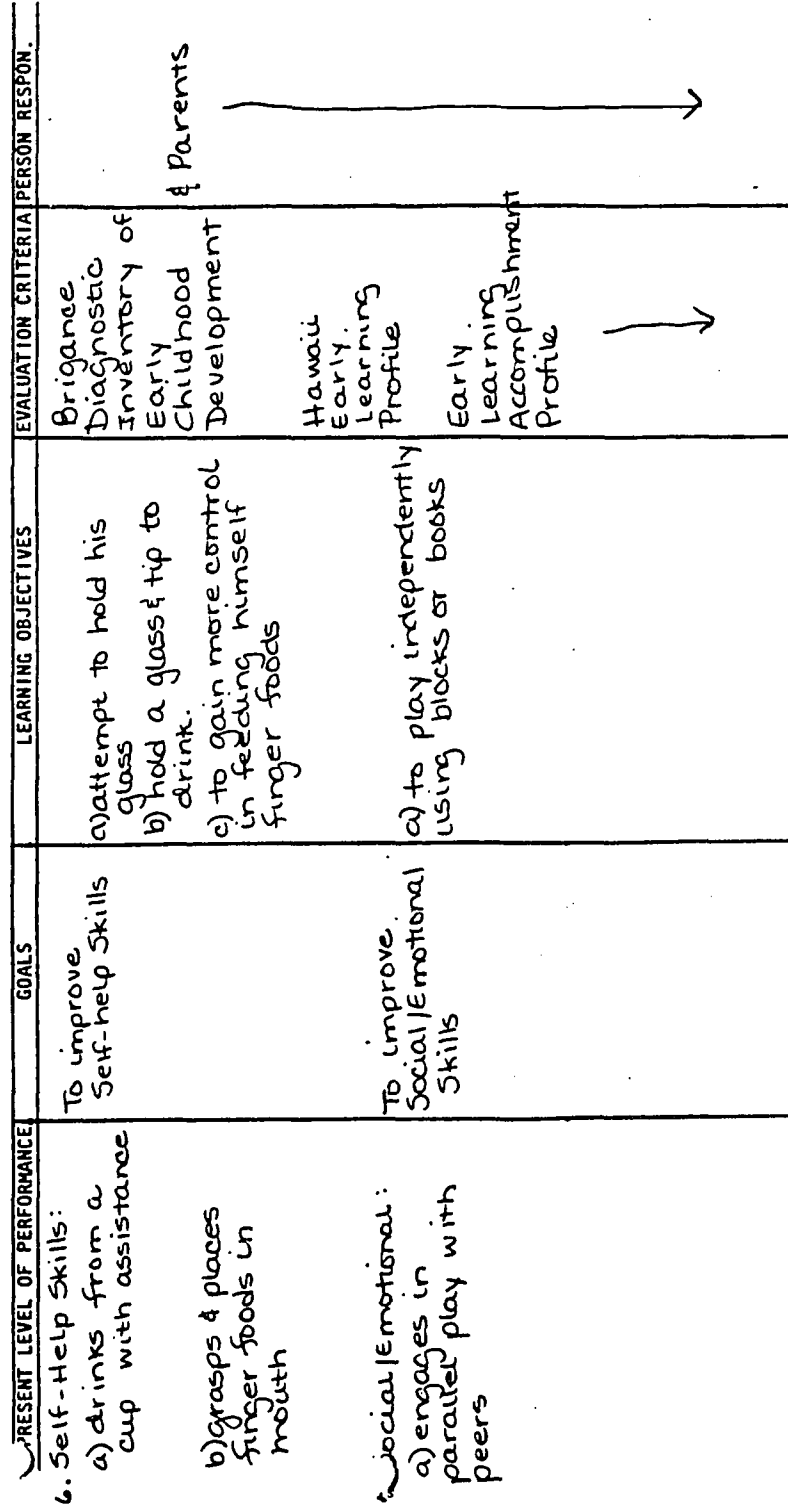 PRESENT LEVEL OF PERFORMANCE
GOALS
LEARNING OBJECTIVES
EVALUATION CRITERIA
PERSON RESPON.
6. Self-Help Skills:
a) drinks from a
cup with assistance
b) grasps & places
finger foods in
mouth
To improve
Self-help Skills
a) attempt to hold his
glass
b) hold a glass & tip to
drink.
c) to gain more control
in feeding himself
finger foods
Brigance
Diagnostic
Inventory of
Early
Childhood
Development
& Parents
Hawaii
Early
Learning
Profile
Social/Emotional:
a) engages in
parallel play with
peers
To improve
Social/Emotional
Skills
a) to play independently
using blocks or books
Early
Learning
Accomplishment
Profile